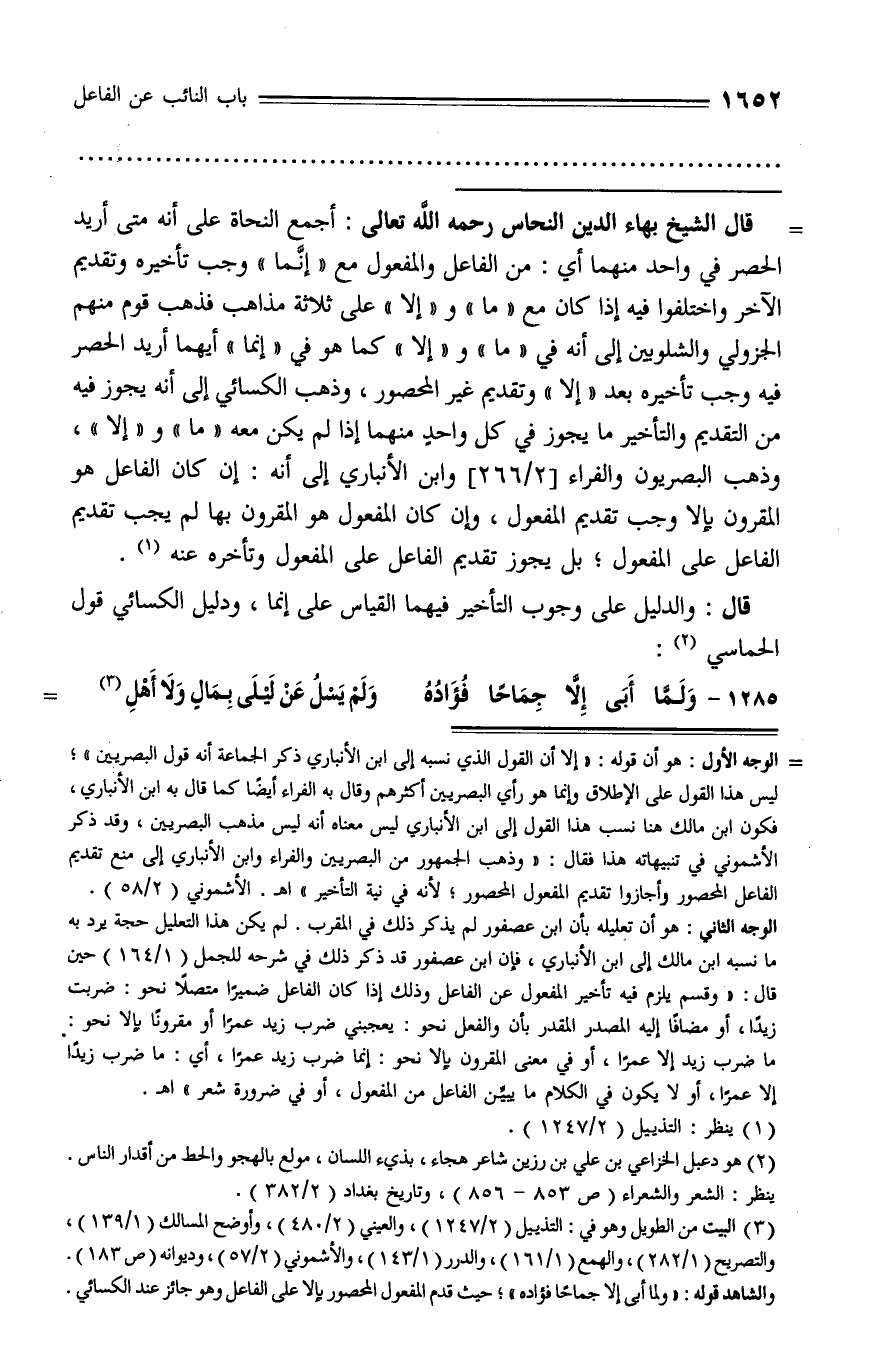 ١٦٥٢ باب النائب عن الفاعل
................................................................................
= قال الشيخ بهاء الدين النحاس رحمه اللَّه تعالى : أجمع النحاة على أنه متى أريد
الحصر في واحد منهما أي : من الفاعل والمفعول مع « إنَّما » وجب تأخيره وتقديم
الآخر واختلفوا فيه إذا كان مع « ما » و « إلا » على ثلاثة مذاهب فذهب قوم منهم
الجزولي والشلوبين إلى أنه في « ما » و « إلا » كما هو في « إنما » أيهما أريد الحصر
فيه وجب تأخيره بعد « إلا » وتقديم غير المحصور ، وذهب الكسائي إلى أنه يجوز فيه
من التقديم والتأخير ما يجوز في كل واحدٍ منهما إذا لم يكن معه « ما » و « إلا » ،
وذهب البصريون والفراء [٢٦٦/٢] وابن الأنباري إلى أنه : إن كان الفاعل هو
المقرون بإلا وجب تقديم المفعول ، وإن كان المفعول هو المقرون بها لم يجب تقديم
الفاعل على المفعول ؛ بل يجوز تقديم الفاعل على المفعول وتأخره عنه (١) .
قال : والدليل على وجوب التأخير فيهما القياس على إنما ، ودليل الكسائي قول
الحماسي (٢) :
١٢٨٥ - وَلَمَّا أَبَى إِلَّا جِمَاحًا فُؤَادُهُ وَلَمْ يَسْلُ عَنْ لَيْلَى بِمَالٍ وَلَا أَهْلِ (٣) =
= الوجه الأول : هو أن قوله : « إلا أن القول الذي نسبه إلى ابن الأنباري ذكر الجماعة أنه قول البصريين » ؛
ليس هذا القول على الإطلاق وإنما هو رأي البصريين أكثرهم وقال به الفراء أيضًا كما قال به ابن الأنباري ،
فكون ابن مالك هنا نسب هذا القول إلى ابن الأنباري ليس معناه أنه ليس مذهب البصريين ، وقد ذكر
الأشموني في تنبيهاته هذا فقال : « وذهب الجمهور من البصريين والفراء وابن الأنباري إلى منع تقديم
الفاعل المحصور وأجازوا تقديم المفعول المحصور ؛ لأنه في نية التأخير » اهـ . الأشموني ( ٥٨/٢ ) .
الوجه الثاني : هو أن تعليله بأن ابن عصفور لم يذكر ذلك في المقرب . لم يكن هذا التعليل حجة يرد به
ما نسبه ابن مالك إلى ابن الأنباري ، فإن ابن عصفور قد ذكر ذلك في شرحه للجمل ( ١٦٤/١ ) حين
قال : « وقسم يلزم فيه تأخير المفعول عن الفاعل وذلك إذا كان الفاعل ضميرًا متصلًا نحو : ضربت
زيدًا ، أو مضافًا إليه المصدر المقدر بأن والفعل نحو : يعجبني ضرب زيد عمرًا أو مقرونًا بإلا نحو :
ما ضرب زيد إلا عمرًا ، أو في معنى المقرون بإلا نحو : إنما ضرب زيد عمرًا ، أي : ما ضرب زيدًا
إلا عمرًا ، أو لا يكون في الكلام ما يبيّن الفاعل من المفعول ، أو في ضرورة شعر » اهـ .
(١) ينظر : التذييل ( ١٢٤٧/٢ ) .
(٢) هو دعبل الخزاعي بن علي بن رزين شاعر هجاء ، بذيء اللسان ، مولع بالهجو والحط من أقدار الناس .
ينظر : الشعر والشعراء ( ص ٨٥٣ – ٨٥٦ ) ، وتاريخ بغداد ( ٣٨٢/٢ ) .
(٣) البيت من الطويل وهو في : التذييل ( ١٢٤٧/٢ ) ، والعيني ( ٤٨٠/٢ ) ، وأوضح المسالك ( ١٣٩/١ ) ،
والتصريح ( ٢٨٢/١ ) ، والهمع ( ١٦١/١ ) ، والدرر ( ١٤٣/١ ) ، والأشموني ( ٥٧/٢ ) ، وديوانه ( ص ١٨٣ ) .
والشاهد قوله : « ولما أبى إلا جماحًا فؤاده » ؛ حيث قدم المفعول المحصور بإلا على الفاعل وهو جائز عند الكسائي .